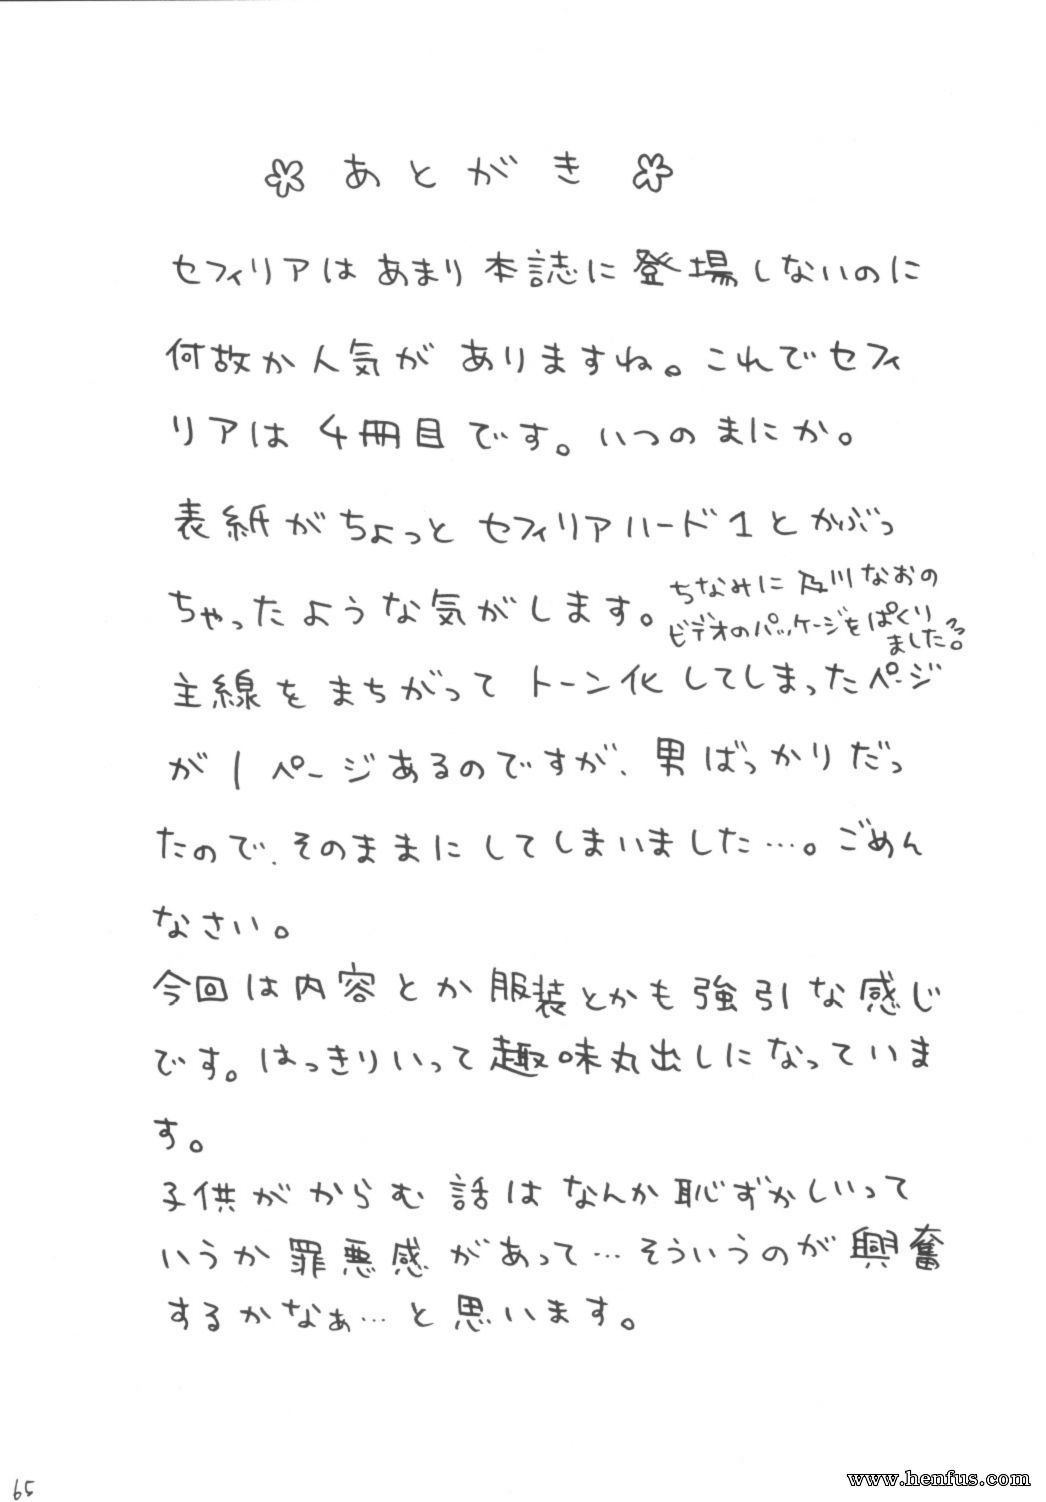 あとがき
セフィリアはあまり本誌に登場しないのに
何故か人気がありますね。これでセフィ
リアは4冊目です。いつのまにか。
表紙がちょっとセフィリアハード1とかぶっ
ちゃったような気がします。
ちなみに及川なおの
ビデオのパッケージをぱくり
ました。
主線をまちがってトーン化してしまったページ
が1ページあるのですが、男ばっかりだっ
たので、そのままにしてしまいました…。ごめん
なさい。
今回は内容とか服装とかも強引な感じ
です。はっきりいって趣味丸出しになっていま
す。
65
www.henfus.com